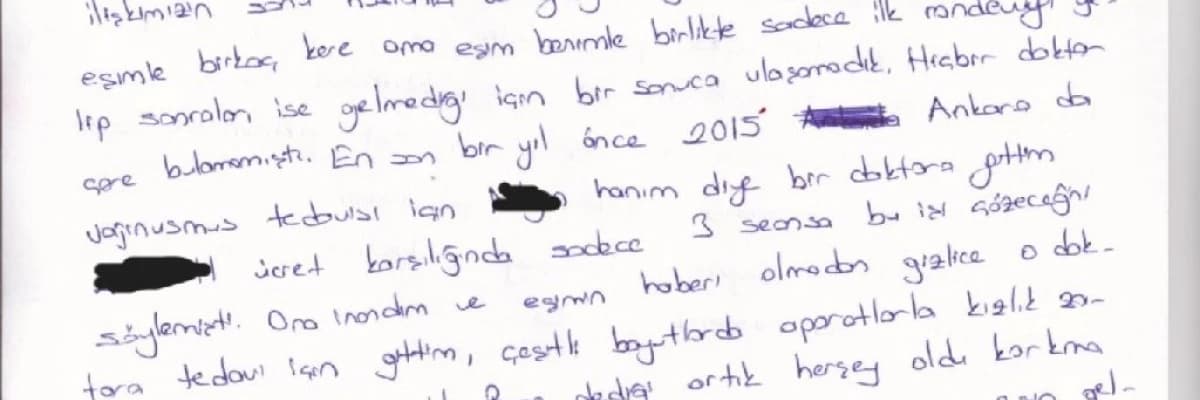 ilişkimizin sonu
eşimle birkaç kere ama eşim benimle birlikte sadece ilk randevuya ge-
lip sonraları ise gelmediği için bir sonuca ulaşamadık. Hiçbir doktor
çare bulamamıştı. En son bir yıl önce 2015 Ankara da
vajinusmus tedavisi için hanım diye bir doktora gittim
ücret karşılığında sadece 3 seansa bu işi çözeceğini
söylemişti. Ona inandım ve eşimin haberi olmadan gizlice o dok-
tora tedavi için gittim, çeşitli boyutlarda aparatlarla kızlık za-
dediği artık herşey oldu korkma
gel-